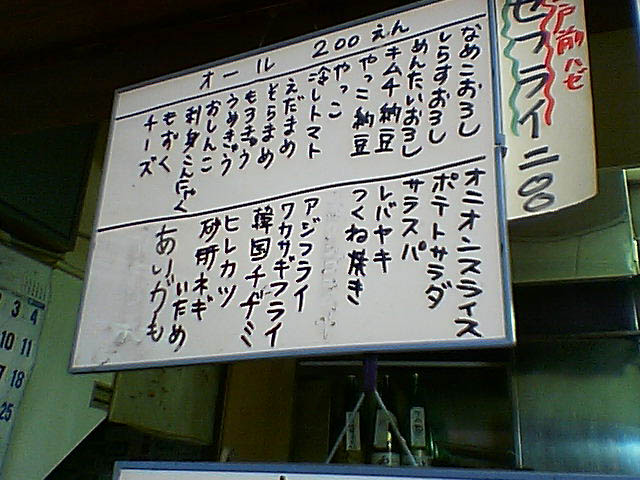 オール 200えん
なめこおろし
しらすおろし
めんたいおろし
キムチ納豆
やっこ納豆
やっこ
冷しトマト
えだまめ
そらまめ
もろきゅう
うめきゅう
おしんこ
刺身こんにゃく
もずく
チーズ
オニオンスライス
ポテトサラダ
サラスパ
レバヤキ
つくね焼き
アジフライ
ワカサギフライ
韓国チヂミ
ヒレカツ
砂肝ネギいため
あいがも
江戸前ハゼ
ゼフライ二〇〇
3 4
10 11
17 18
25